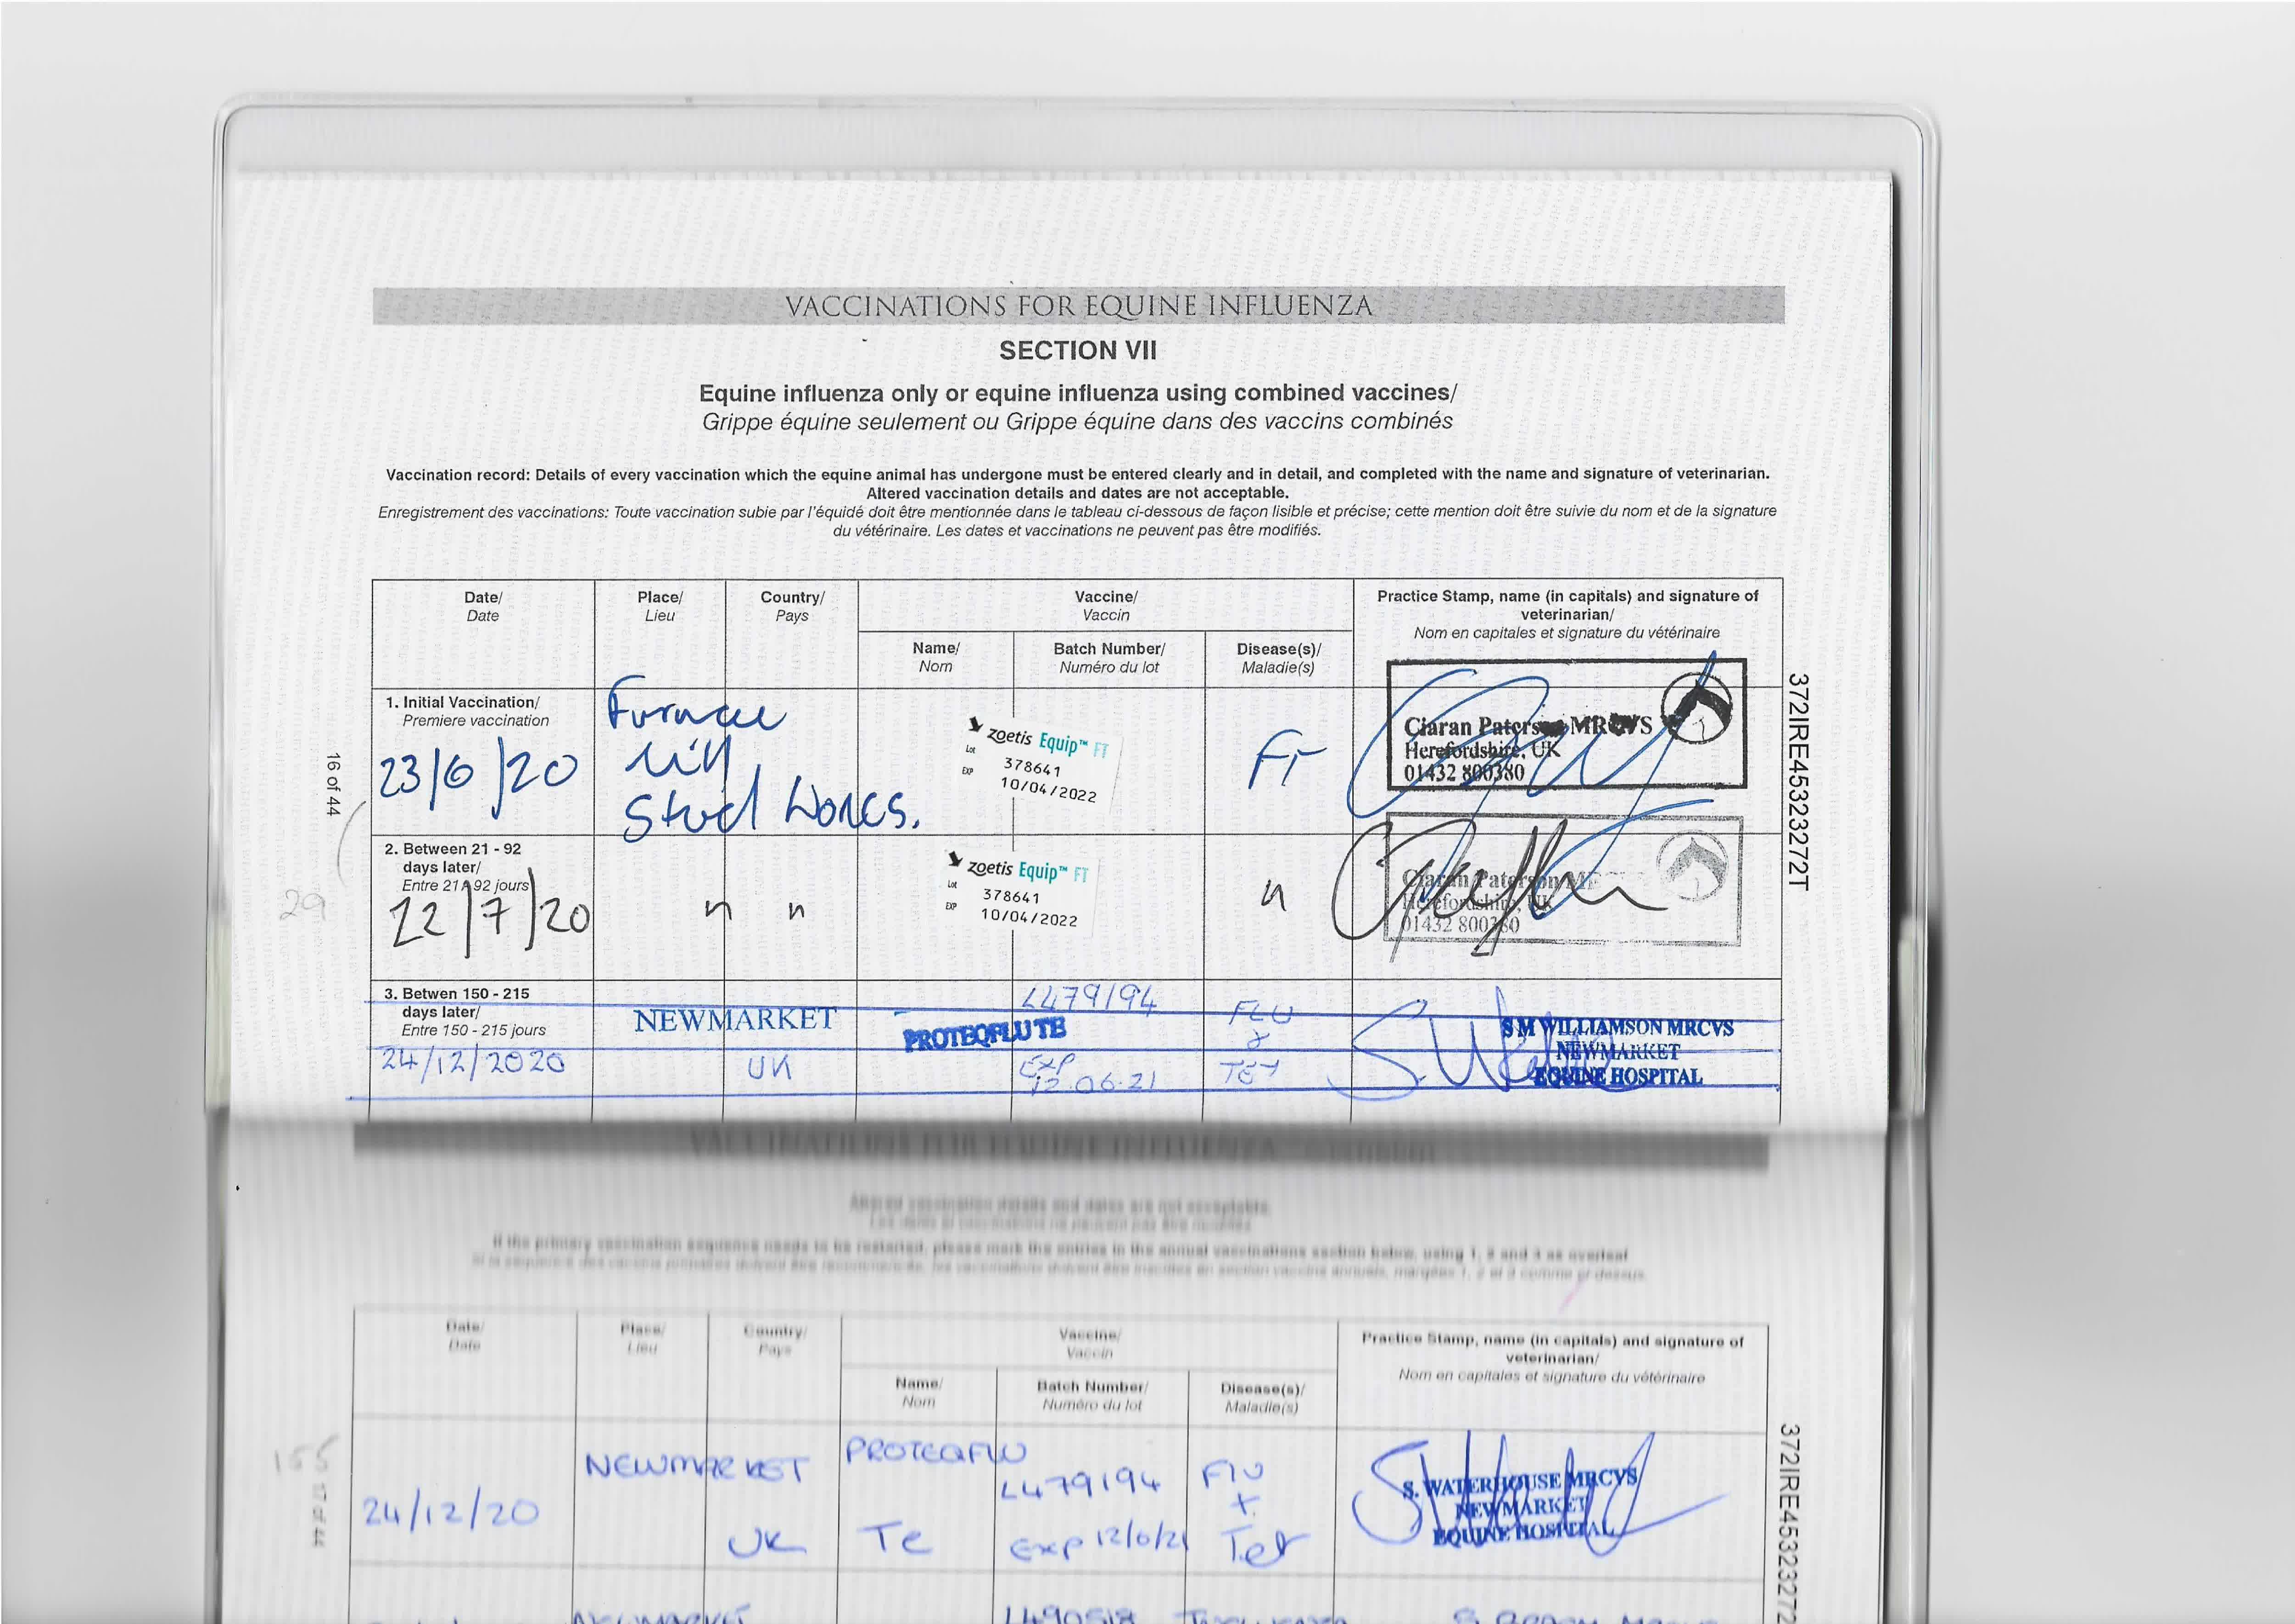 VACCINATIONS FOR EQUINE INFLUENZA
SECTION VII
Equine influenza only or equine influenza using combined vaccines/
Grippe équine seulement ou Grippe équine dans des vaccins combinés
Vaccination record: Details of every vaccination which the equine animal has undergone must be entered clearly and in detail, and completed with the name and signature of veterinarian.
Altered vaccination details and dates are not acceptable.
Enregistrement des vaccinations: Toute vaccination subie par l'équidé doit être mentionnée dans le tableau ci-dessous de façon lisible et précise; cette mention doit être suivie du nom et de la signature
du vétérinaire. Les dates et vaccinations ne peuvent pas être modifiés.
Date/
Date
Place/
Lieu
Country/
Pays
Vaccine/
Vaccin
Name/
Nom
Batch Number/
Numéro du lot
Disease(s)/
Maladie(s)
Practice Stamp, name (in capitals) and signature of
veterinarian/
Nom en capitales et signature du vétérinaire
1. Initial Vaccination/
Premiere vaccination
23/6/20
Furnace
Mill
Stud Worcs.
zoetis Equip™ FT
Lot 378641
EXP 10/04/2022
FT
Ciaran Paterson MRCVS
Herefordshire, UK
01432 800380
2. Between 21 - 92
days later/
Entre 21 - 92 jours
22/7/20
" "
zoetis Equip™ FT
Lot 378641
EXP 10/04/2022
"
Ciaran Paterson MR
Herefordshire, UK
01432 800380
3. Betwen 150 - 215
days later/
Entre 150 - 215 jours
24/12/2020
NEWMARKET
UK
PROTEQFLU TE
L479194
EXP
12.06.21
FLU
&
TET
S M WILLIAMSON MRCVS
NEWMARKET
EQUINE HOSPITAL
16 of 44
29
372IRE45323272T
Altered vaccination details and dates are not acceptable.
Les dates et vaccinations ne peuvent pas être modifiés
If the primary vaccination sequence needs to be restarted, please mark the entries in the annual vaccinations section below, using 1, 2 and 3 as overleaf
Date/
Date
Place/
Lieu
Country/
Pays
Vaccine/
Vaccin
Name/
Nom
Batch Number/
Numéro du lot
Disease(s)/
Maladie(s)
Practice Stamp, name (in capitals) and signature of
veterinarian/
Nom en capitales et signature du vétérinaire
24/12/20
NEWMARKET
UK
PROTEQFLU
Te
L479194
Exp 12/6/21
Flu
+
Tet
S. WATERHOUSE MRCVS
NEWMARKET
EQUINE HOSPITAL
155
17 of 44
372IRE4532327
NEWMARKET